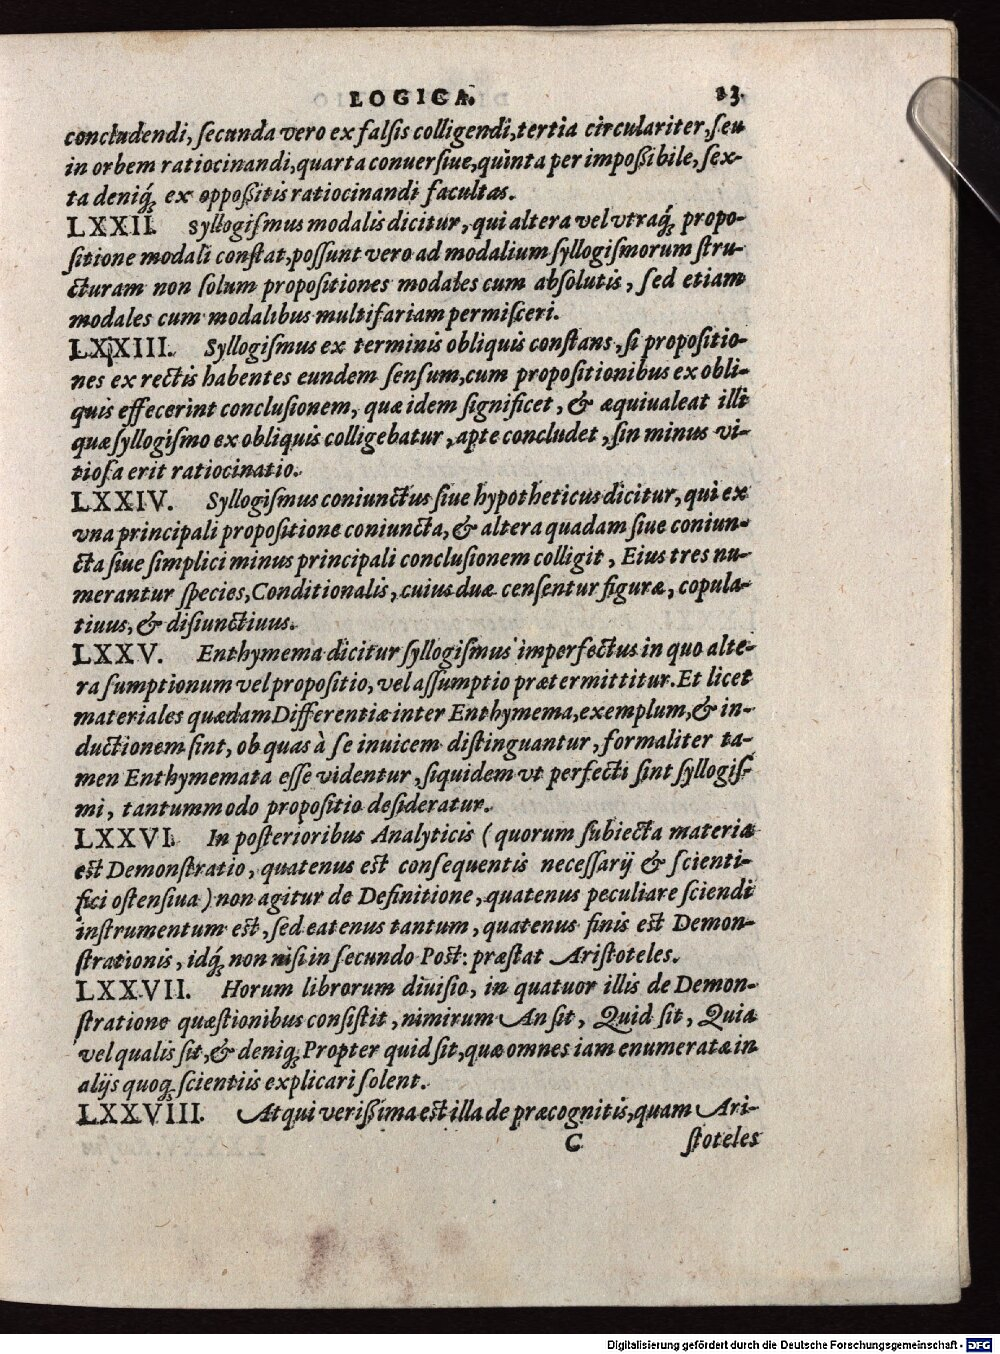 LOGICA. 23.
concludendi, ſecunda vero ex falſis colligendi, tertia circulariter, ſeu
in orbem ratiocinandi, quarta conuerſiue, quinta per impoßibile, ſex-
ta deniq́; ex oppoßitis ratiocinandi facultas.
LXXII. Syllogiſmus modalis dicitur, qui altera vel vtraq́; propo-
ſitione modali conſtat, poſſunt vero ad modalium ſyllogiſmorum ſtru-
cturam non ſolum propoſitiones modales cum abſolutis, ſed etiam
modales cum modalibus multifariam permiſceri.
LXXIII. Syllogiſmus ex terminis obliquis conſtans, ſi propoſitio-
nes ex rectis habentes eundem ſenſum, cum propoſitionibus ex obli-
quis effecerint concluſionem, quæ idem ſignificet, & æquiualeat illi
quæ ſyllogiſmo ex obliquis colligebatur, apte concludet, ſin minus vi-
tioſa erit ratiocinatio.
LXXIV. Syllogiſmus coniunctus ſiue hypotheticus dicitur, qui ex
vna principali propoſitione coniuncta, & altera quadam ſiue coniun-
cta ſiue ſimplici minus principali concluſionem colligit, Eius tres nu-
merantur ſpecies, Conditionalis, cuius duæ cenſentur figuræ, copula-
tiuus, & diſiunctiuus.
LXXV. Enthymema dicitur ſyllogiſmus imperfectus in quo alte-
ra ſumptionum vel propoſitio, vel aſſumptio prætermittitur. Et licet
materiales quædam Differentiæ inter Enthymema, exemplum, & in-
ductionem ſint, ob quas à ſe inuicem diſtinguantur, formaliter ta-
men Enthymemata eſſe videntur, ſiquidem vt perfecti ſint ſyllogiſ-
mi, tantummodo propoſitio deſideratur.
LXXVI. In poſterioribus Analyticis (quorum ſubiecta materia
eſt Demonſtratio, quatenus eſt conſequentis neceſſarij & ſcienti-
fici oſtenſiua) non agitur de Definitione, quatenus peculiare ſciendi
inſtrumentum eſt, ſed eatenus tantum, quatenus finis eſt Demon-
ſtrationis, idq́; non niſi in ſecundo Poſt: præſtat Ariſtoteles.
LXXVII. Horum librorum diuiſio, in quatuor illis de Demon-
ſtratione quæſtionibus conſiſtit, nimirum An ſit, Quid ſit, Quia
vel qualis ſit, & deniq; Propter quid ſit, quæ omnes iam enumeratæ in
alijs quoq; ſcientiis explicari ſolent.
LXXVIII. Atqui verißima eſt illa de præcognitis, quam Ari-
C ſtoteles
Digitalisierung gefördert durch die Deutsche Forschungsgemeinschaft - DFG